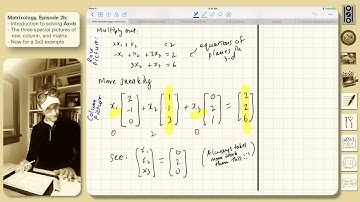 Matrixology, Episode 2b:
- Introduction to solving Ax=b
- The three special pictures of row, column, and matrix
- Now for a 3x3 example
Multiply out:
Row Picture:
2x₁ + x₂ = 2
-x₁ + x₂ + 2x₃ = 2
3x₂ + x₃ = 6
equations of
planes in
3-d
More sneakily
Column Picture:
x₁ [2 -1 0] + x₂ [1 1 3] + x₃ [0 2 1] = [2 2 6]
0 2 0
see: [x₁ x₂ x₃] = [0 2 0]
(Always takes
more work
than this!!)